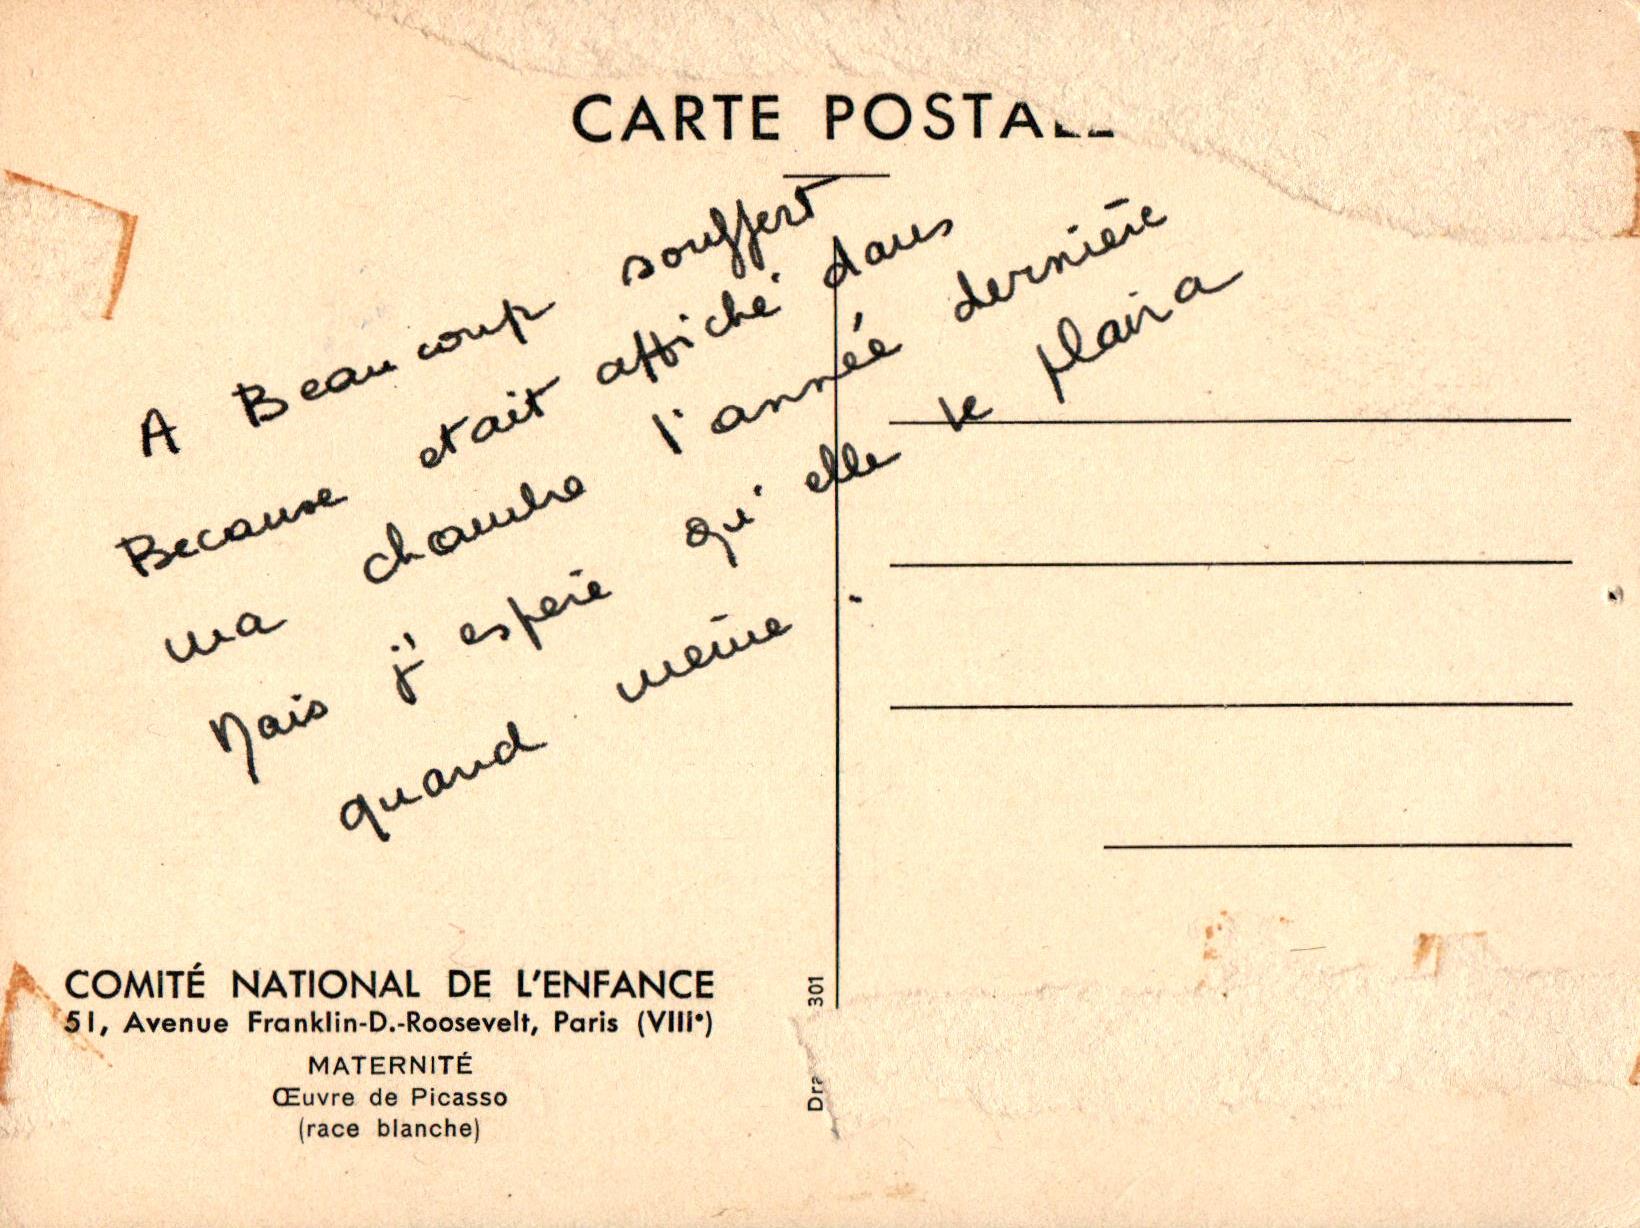 CARTE POSTALE
A Beaucoup souffert
Because etait affiché dans
ma chambre l'année dernière
Mais j'espere qu'elle te plaira
quand même.
COMITÉ NATIONAL DE L'ENFANCE
51, Avenue Franklin-D.-Roosevelt, Paris (VIIIe)
MATERNITÉ
Œuvre de Picasso
(race blanche)
Dra
301